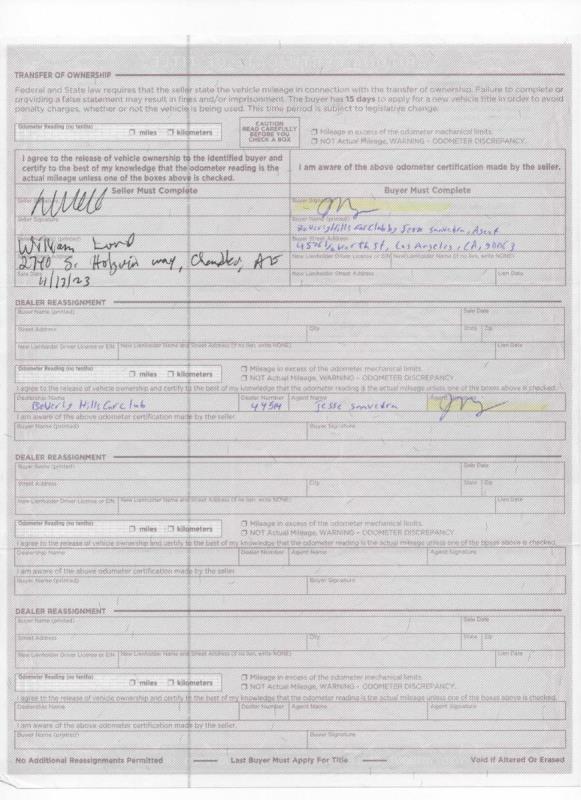 TRANSFER OF OWNERSHIP
Federal and State law requires that the seller state the vehicle mileage in connection with the transfer of ownership. Failure to complete or
providing a false statement may result in fines and/or imprisonment. The buyer has 15 days to apply for a new vehicle title in order to avoid
penalty charges, whether or not the vehicle is being used. This time period is subject to legislative change.
Odometer Reading (no tenths)
miles kilometers
CAUTION
READ CAREFULLY
BEFORE YOU
CHECK A BOX
Mileage in excess of the odometer mechanical limits.
NOT Actual Mileage, WARNING - ODOMETER DISCREPANCY.
I agree to the release of vehicle ownership to the identified buyer and
certify to the best of my knowledge that the odometer reading is the
actual mileage unless one of the boxes above is checked.
I am aware of the above odometer certification made by the seller.
Seller Must Complete
Buyer Must Complete
Seller Signature
Seller
William Lord
2740 S. Holguin way, Chandler, AZ
Sale Date
4/17/23
Buyer
Buyer Name (printed)
Beverly Hills Car Club by Jesse Saavedra, Agent
Buyer Street Address
4576 1/2 Worth St, Los Angeles, CA, 90063
New Lienholder Driver License or EIN New Lienholder Name (if no lien, write NONE)
New Lienholder Street Address Lien Date
DEALER REASSIGNMENT
Buyer Name (printed) Sale Date
Street Address City State Zip
New Lienholder Driver License or EIN New Lienholder Name and Street Address (if no lien, write NONE) Lien Date
Odometer Reading (no tenths)
miles kilometers
Mileage in excess of the odometer mechanical limits.
NOT Actual Mileage, WARNING - ODOMETER DISCREPANCY
I agree to the release of vehicle ownership and certify to the best of my knowledge that the odometer reading is the actual mileage unless one of the boxes above is checked.
Dealership Name Dealer Number Agent Name Agent
Beverly Hills Car Club 44504 Jesse Saavedra
I am aware of the above odometer certification made by the seller.
Buyer Name (printed) Buyer Signature
DEALER REASSIGNMENT
Buyer Name (printed) Sale Date
Street Address City State Zip
New Lienholder Driver License or EIN New Lienholder Name and Street Address (if no lien, write NONE) Lien Date
Odometer Reading (no tenths)
miles kilometers
Mileage in excess of the odometer mechanical limits.
NOT Actual Mileage, WARNING - ODOMETER DISCREPANCY
I agree to the release of vehicle ownership and certify to the best of my knowledge that the odometer reading is the actual mileage unless one of the boxes above is checked.
Dealership Name Dealer Number Agent Name Agent Signature
I am aware of the above odometer certification made by the seller.
Buyer Name (printed) Buyer Signature
DEALER REASSIGNMENT
Buyer Name (printed) Sale Date
Street Address City State Zip
New Lienholder Driver License or EIN New Lienholder Name and Street Address (if no lien, write NONE) Lien Date
Odometer Reading (no tenths)
miles kilometers
Mileage in excess of the odometer mechanical limits.
NOT Actual Mileage, WARNING - ODOMETER DISCREPANCY.
I agree to the release of vehicle ownership and certify to the best of my knowledge that the odometer reading is the actual mileage unless one of the boxes above is checked.
Dealership Name Dealer Number Agent Name Agent Signature
I am aware of the above odometer certification made by the seller.
Buyer Name (printed) Buyer Signature
No Additional Reassignments Permitted Last Buyer Must Apply For Title Void If Altered Or Erased